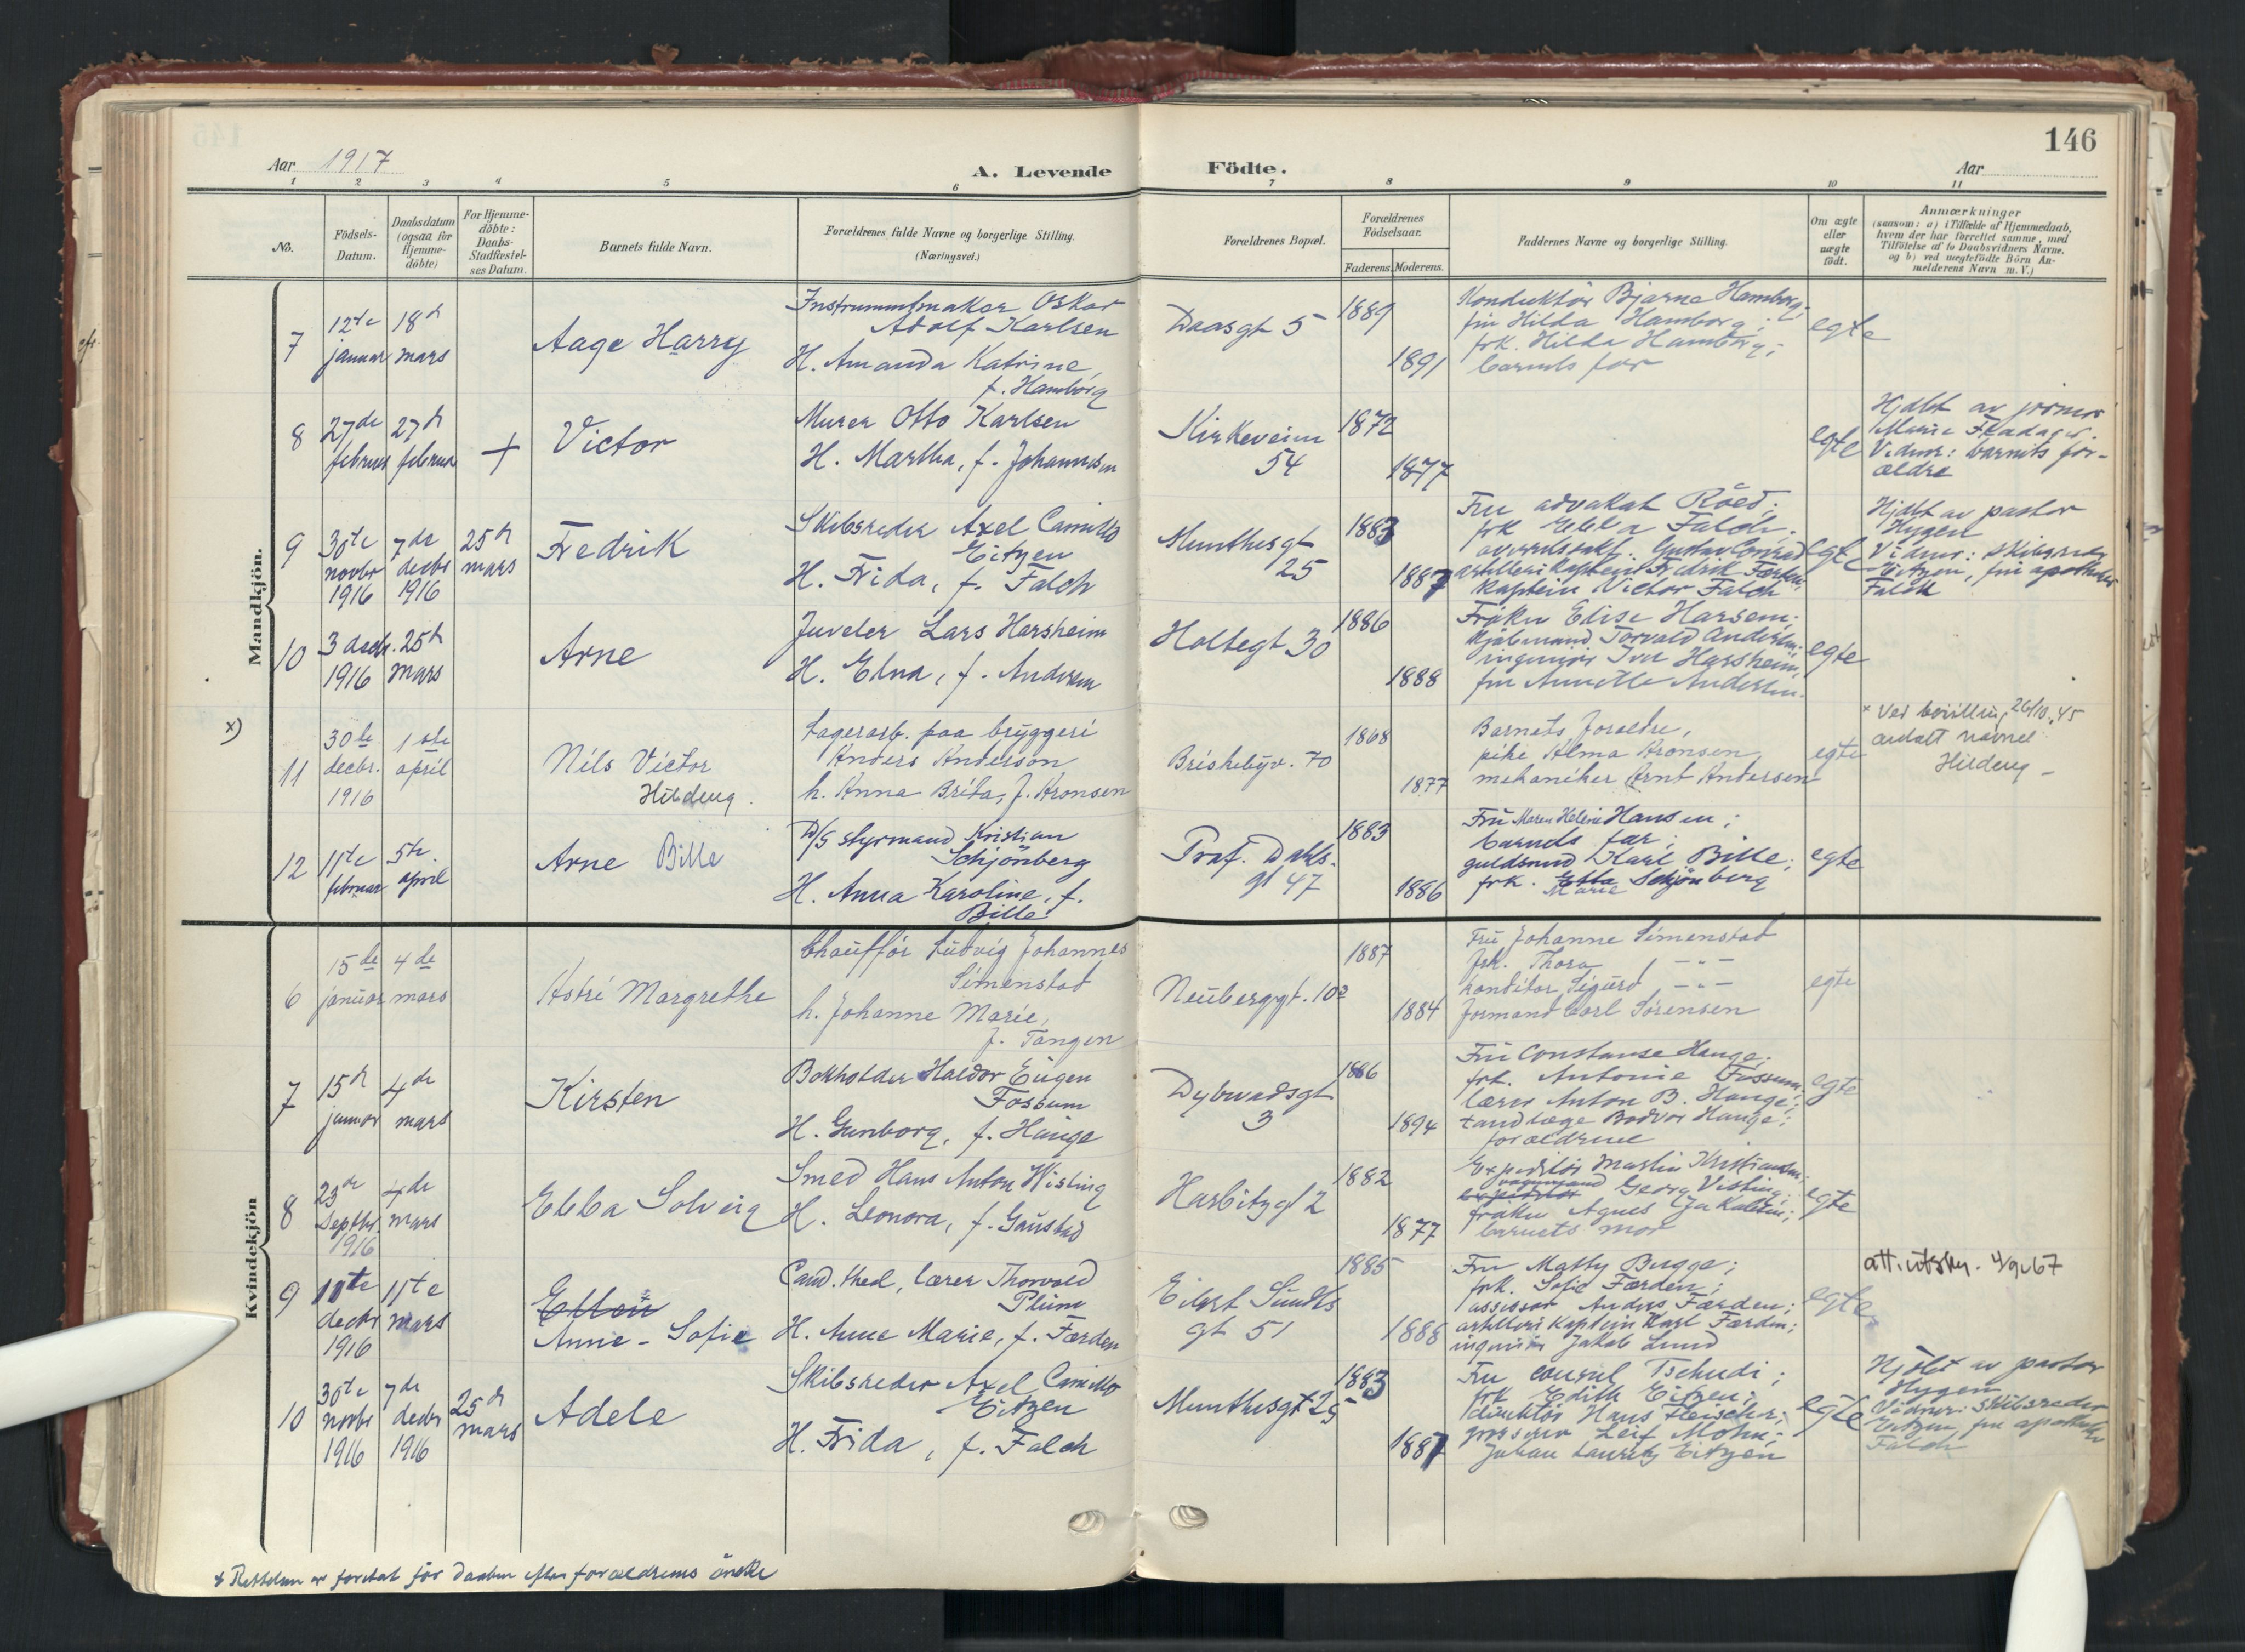 146
Aar 1917
A. Levende Födte.
Aar
1 2 3 4 5 6 7 8 9 10 11
No.
Födsels-
Datum.
Daabsdatum
(ogsaa for
Hjemme-
döbte)
For Hjemme-
döbte:
Daabs-
Stadfæstel-
ses Datum.
Barnets fulde Navn.
Forældrenes fulde Navne og borgerlige Stilling.
(Næringsvei.)
Forældrenes Bopæl.
Forældrenes
Födselsaar.
Faderens. Moderens.
Faddernes Navne og borgerlige Stilling.
Om ægte
eller
uægte
födt.
Anmærkninger
(saasom: a) i Tilfælde af Hjemmedaab,
hvem der har forrettet samme, med
Tilföielse af to Daabsvidners Navne,
og b) ved uægtefödte Börn An-
melderens Navn m. V.)
Mandkjön.
7
12te
januar
18d
mars
Aage Harry
Instrumentmaker Oskar
Adolf Karlsen
H. Amanda Katrine,
f. Hamborg
Daasgt 5
1889
1891
Konduktör Bjarne Hamborg;
fru Hilda Hamborg;
frk. Hilda Hamborg;
barnets far
egte
8
27de
februar
27d
februar
+
Victor
Murer Otto Karlsen
H. Martha, f. Johannesen
Kirkeveien
54
1872
1877
egte
Hjdbt av jormor
Vidner: barnets for-
ældre
9
30te
novbr
1916
7de
decbr
1916
25d
mars
Fredrik
Skibsreder Axel Camillo
Eitzen
H. Frida, f. Falch
Munthesgt
25
1883
1887
Fru advokat Röed;
frk Ebba Falch;
overretssakf. Gustav Conrad
artillerikaptein Fredrik
kaptein Victor Falch
egte
Hjdbt av pastor
Hygen
Vidner: skibsreder
Eitzen, fru apotheker
Falch
10
3 decbr.
1916
25d
mars
Arne
Juveler Lars Harsheim
H. Edna, f. Andersen
Holtegt 30
1886
1888
Fröken Elise Harsem;
Kjöbmand Torvald Andersen;
ingeniör Iver Harsheim,
fru Annette Andersen.
egte
x)
11
30te
decbr.
1916
1ste
april
Nils Victor
Hildeng.
Lagerarb. paa bryggeri
Anders Anderson
h. Anna Brita, f. Aronsen
Briskebyv. 70
1868
1877
Barnets foraeldre,
pike Alma Aronsen,
mekaniker Arnt Andersen
egte
x Ved bevilling 26/10.45
antatt navnet
Hildeng -
12
11te
februar
5te
april
Arne Bille
D/S styrmand Kristian
Schjönberg
H. Anna Karoline, f.
Bille
Prof. Dahls.
gt 47
1883
1886
Fru Maren Helene Hansen;
barnets far;
guldsmed Karl Bille;
frk. Ebba Schjönberg
Marie
egte
Kvindekjön
6
15de
januar
4de
mars
Astri Margrethe
Chaufför Ludvig Johannes
Simenstad
h. Johanne Marie,
f. Tangen
Neuberggt. 10²
1887
1884
Fru Johanne Simenstad
frk. Thora -"-
konditor Sigurd -"-
formand Carl Sörensen
egte
7
15d
januar
4de
mars
Kirsten
Bokholder Haldor Eugen
Fossum
H. Gunborg, f. Hauge
Dybwadsgt
3
1886
1894
Fru Constanse Hauge;
frk. Antonie Fossum;
lærer Anton B. Hauge;
tandlæge Bodvar Hauge;
forældrene
egte
8
23de
Septbr.
1916
4de
mars
Ebba Solveig
Smed Hans Anton Wisting
H. Leonora, f. Gaustad
Harbitzgt 2
1882
1877
Expeditör Martin Kristiansen;
vognmand Georg Visting;
fröken Agnes
barnets mor
egte
9
10te
decbr
1916
11te
mars
Anne-Sofie
Cand. theol, lærer Thorvald
Plüm
H. Anne Marie, f. Færden
Eilert Sundts
gt 51
1885
1888
Fru Matty Bugge;
frk. Sofie Færden;
assessor Anders Færden;
artillerikaptein Karl Færden;
ingeniör Jakob Lund
egte
att. utskr. 4/9-67
10
30te
novbr
1916
7de
decbr
1916
25d
mars
Adele
Skibsreder Axel Camillo
Eitzen
H. Frida, f. Falch
Munthesgt 25
1883
1887
Fru consul Tschudi;
frk Edith Eitzen;
direktör Hans Fleischer;
grosserer Leif Mohn;
Johan Lauritz Eitzen
egte
Hjdbt av pastor
Hygen
Vidner: Skibsreder
Eitzen, fru apotheker
Falch
x Rettelsen er foretat för daaben efter forældrenes önske